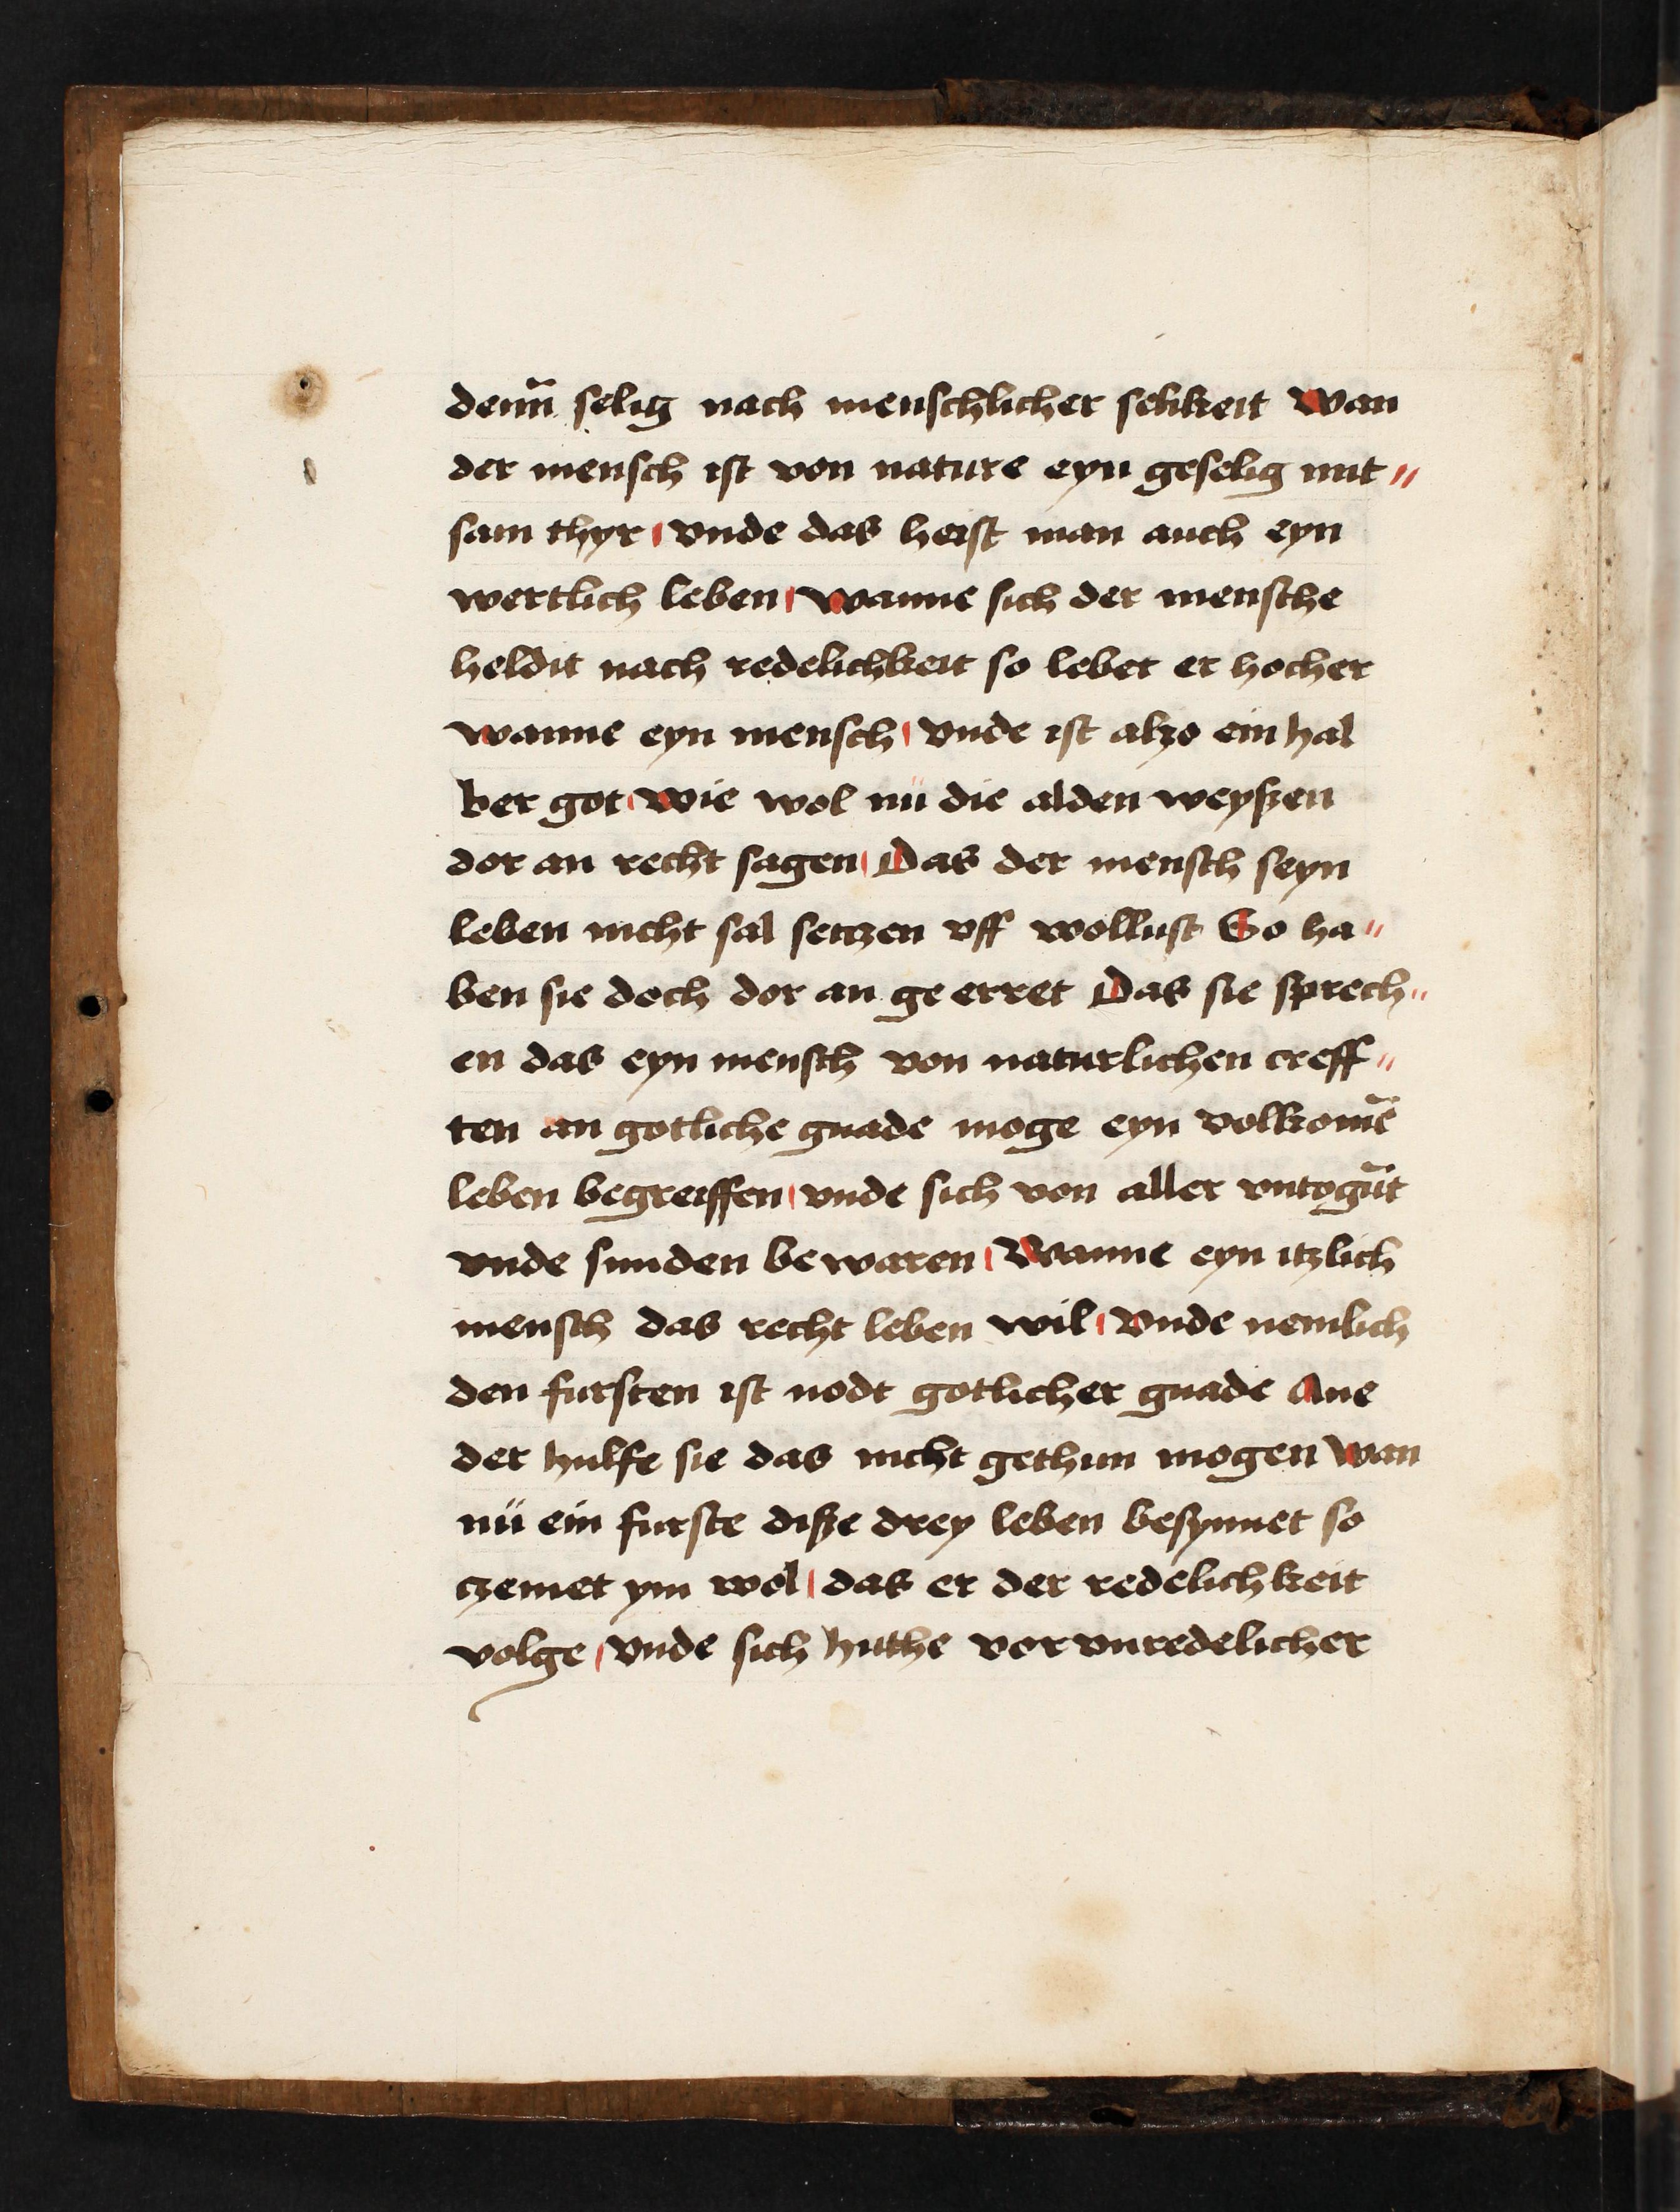 denn̄ selig nach menschlicher selikeit Wan
der mensch ist von nature eyn geselig mit //
sam thyr / vnde das heist man auch eyn
wertlich leben / Wanne sich der mensche
heldit nach redelichkeit so lebet er hocher
wanne eyn mensch / Vnde ist alzo ein hal
ber got / Wie wol nü die alden weyszen
dor an recht sagen / Das der mensch seyn
leben nicht sal setczen vff wollust So ha //
ben sie doch dor an ge erret Das sie sprech //
en das eyn mensch von naturlichen creff //
ten an gotliche gnade moge eyn volkomē
leben begreiffen / vnde sich von aller vntogūt
vnde sunden be waren / Wanne eyn itzlich
mensch das recht leben wil / Vnde nemlich
den fursten ist nodt gotlicher gnade Ane
der hulfe sie das nicht gethun mogen Wan
nü ein furste disze drey leben besynnet so
czemet ym wol / das er der redelichkeit
volge / Vnde sich huthe vor vnredelicher